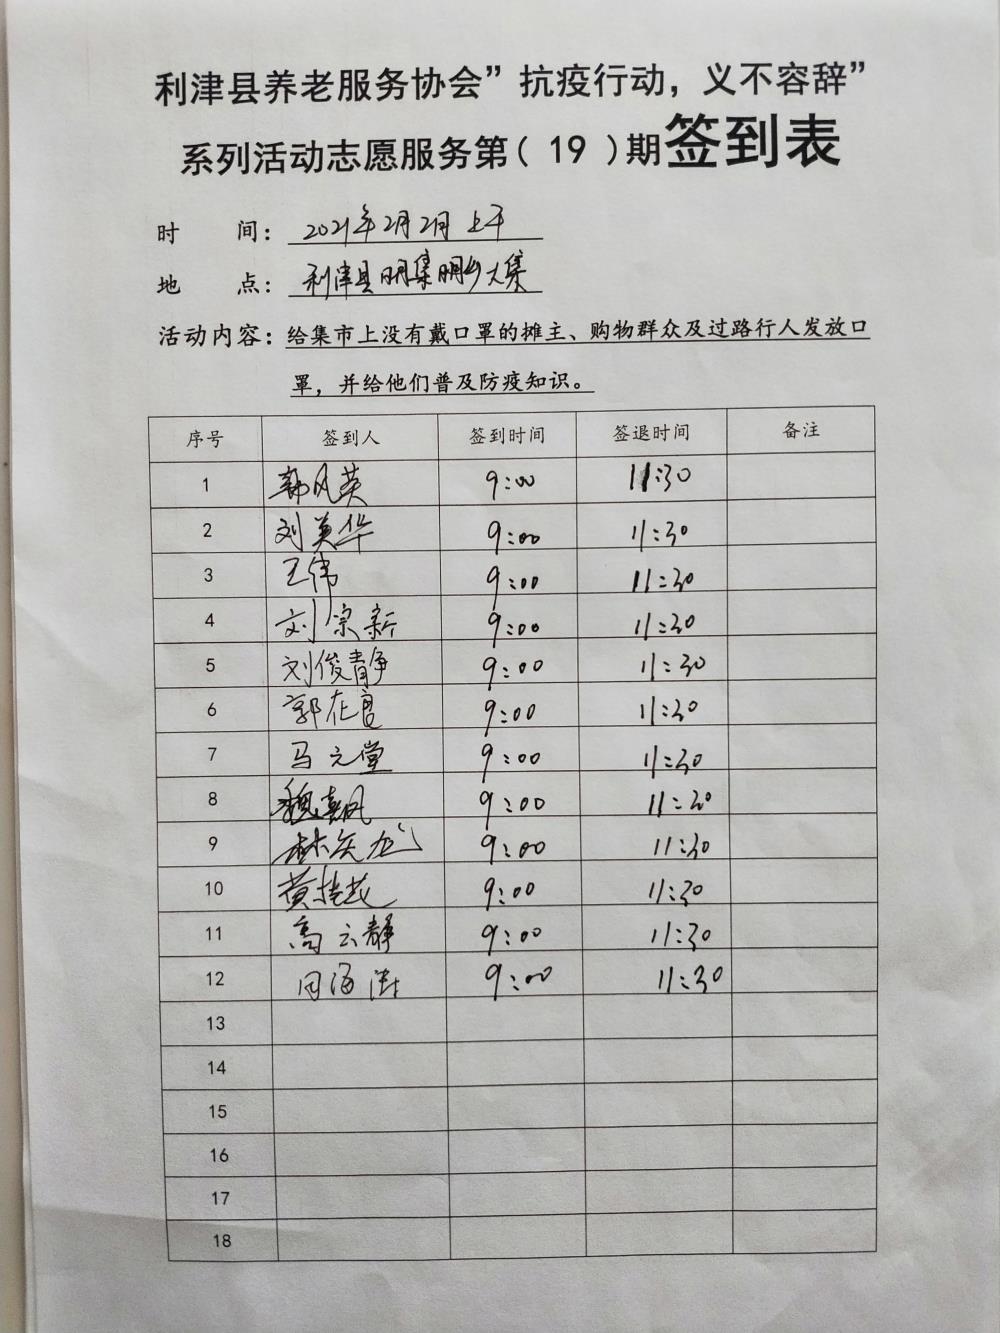 利津县养老服务协会”抗疫行动，义不容辞”
系列活动志愿服务第（ 19 ）期签到表
时 间：2021年2月2日 上午
地 点：利津县明集明乡大集
活动内容：给集市上没有戴口罩的摊主、购物群众及过路行人发放口
罩，并给他们普及防疫知识。
序号 签到人 签到时间 签退时间 备注
1 郭风英 9:00 11:30
2 刘美华 9:00 11:30
3 王伟 9:00 11:30
4 刘宗新 9:00 11:30
5 刘俊静 9:00 11:30
6 郭在官 9:00 11:30
7 马元堂 9:00 11:30
8 魏春风 9:00 11:30
9 9:00 11:30
10 黄桂花 9:00 11:30
11 高云静 9:00 11:30
12 周海 9:00 11:30
13
14
15
16
17
18